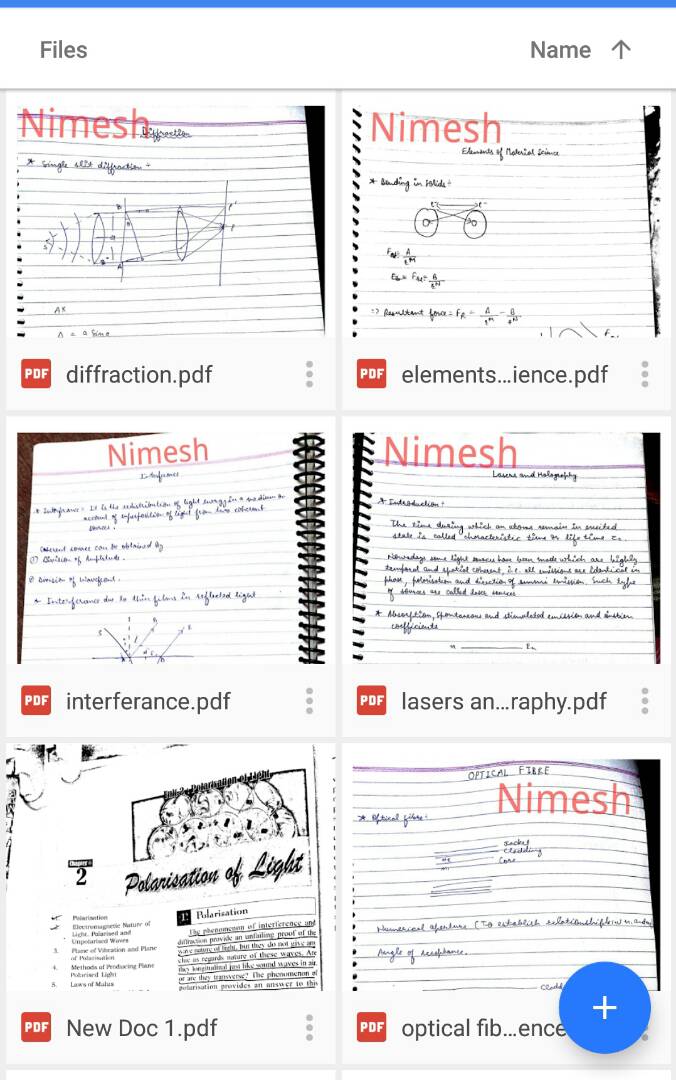 Files
Name
Nimesh
Diffraction
* Single slit diffraction :-
diffraction.pdf
Nimesh
Elements of Material Science
* Bonding in solids :-
=> Resultant force = FR = A/rM - B/rN
elements...ience.pdf
Nimesh
Interference
* Interfrance : It is the redistribution of light energy in a medium on
account of superposition of light from two coherent
sources.
Coherent source can be obtained by
① Division of Amplitude.
② Division of wavefront.
* Interferance due to thin films in reflected light
interferance.pdf
Nimesh
Lasers and Holography
* Introduction :
The time during which an atoms remain in excited
state is called characteristic time or life time
Nowadays some light sources have been made which are highly
temporal and spatial coherent, i.e. all emissions are identical in
phase, polarisation and direction of emission. Such type
of sources are called laser sources
* Absorption, spontaneous and stimulated emission and einstien
coefficients
lasers an...raphy.pdf
Unit-2 : Polarisation of Light
Chapter
2
Polarisation of Light
Polarisation
Electromagnetic Nature of
Light, Polarised and
Unpolarised Waves
3. Plane of Vibration and Plane
of Polarisation
4. Methods of Producing Plane
Polarised Light
5. Laws of Malus
1. Polarisation
The phenomenon of interference and
diffraction provide an unfailing proof of the
wave nature of light, but they do not give any
clue as regards nature of these waves. Are
they longitudinal just like sound waves in air,
or are they transverse? The phenomenon of
polarisation provides an answer to this
New Doc 1.pdf
OPTICAL FIBRE
Nimesh
* Optical fibre :-
Jacket
Cladding
Core
Numerical aperture (To establish relationship b/w
Angle of Acceptance.
optical fib...ence
PDF
PDF
PDF
PDF
PDF
PDF